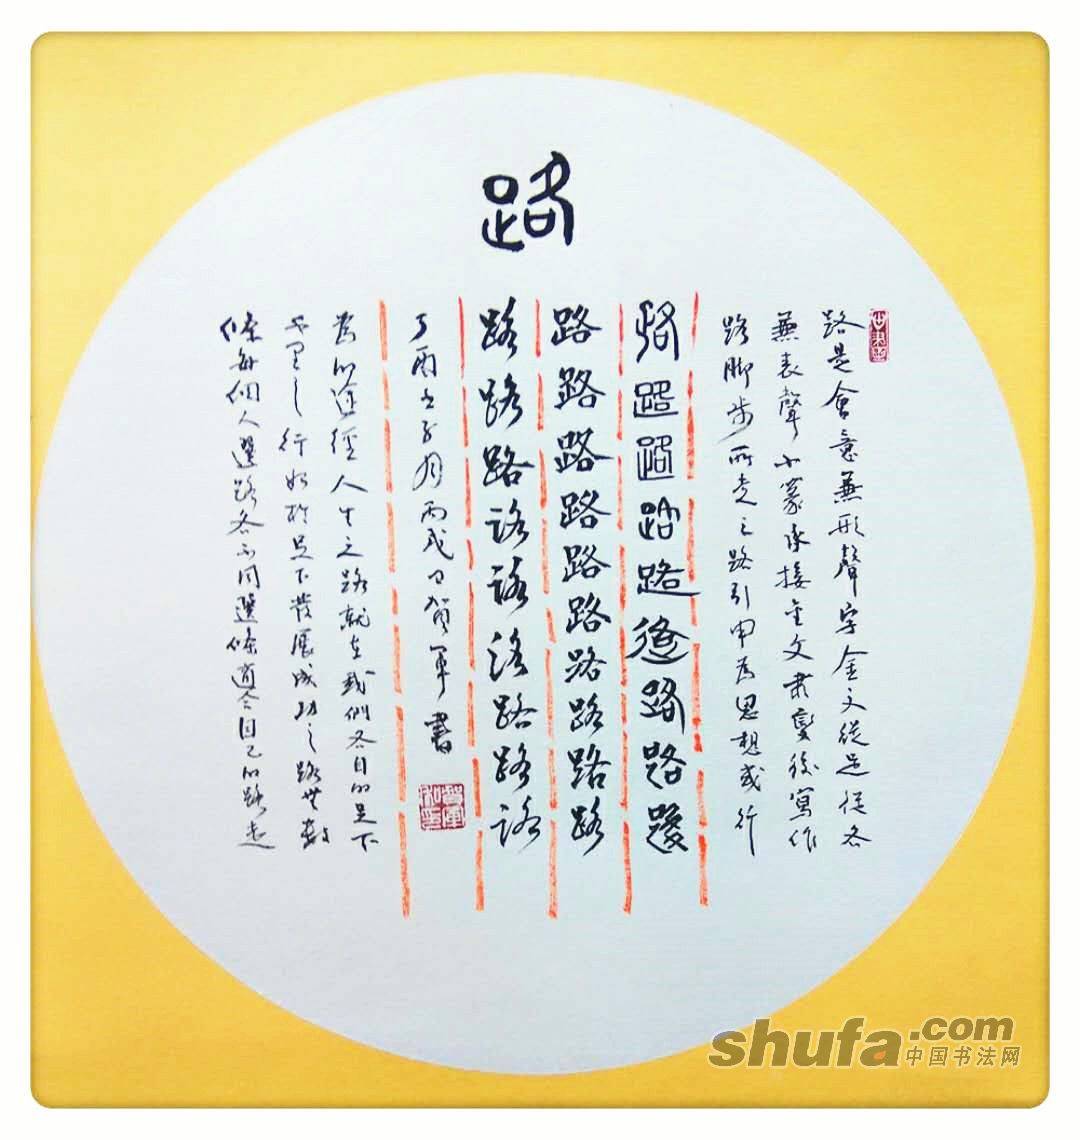 路
路是會意兼形聲字金文從足從各
兼表聲小篆承接金文隶變後寫作
路脚步所走之路引申為思想或行
路路路路路路路路
路路路路路路路路路路
路路路路路路路路路
丁酉 月丙戌日賀軍書
為的途徑人生之路就在我們各自的足下
千里之行始於足下發展成功之路無數
條每個人選路各不同選條適合自己的路走
shufa.com
中国书法网